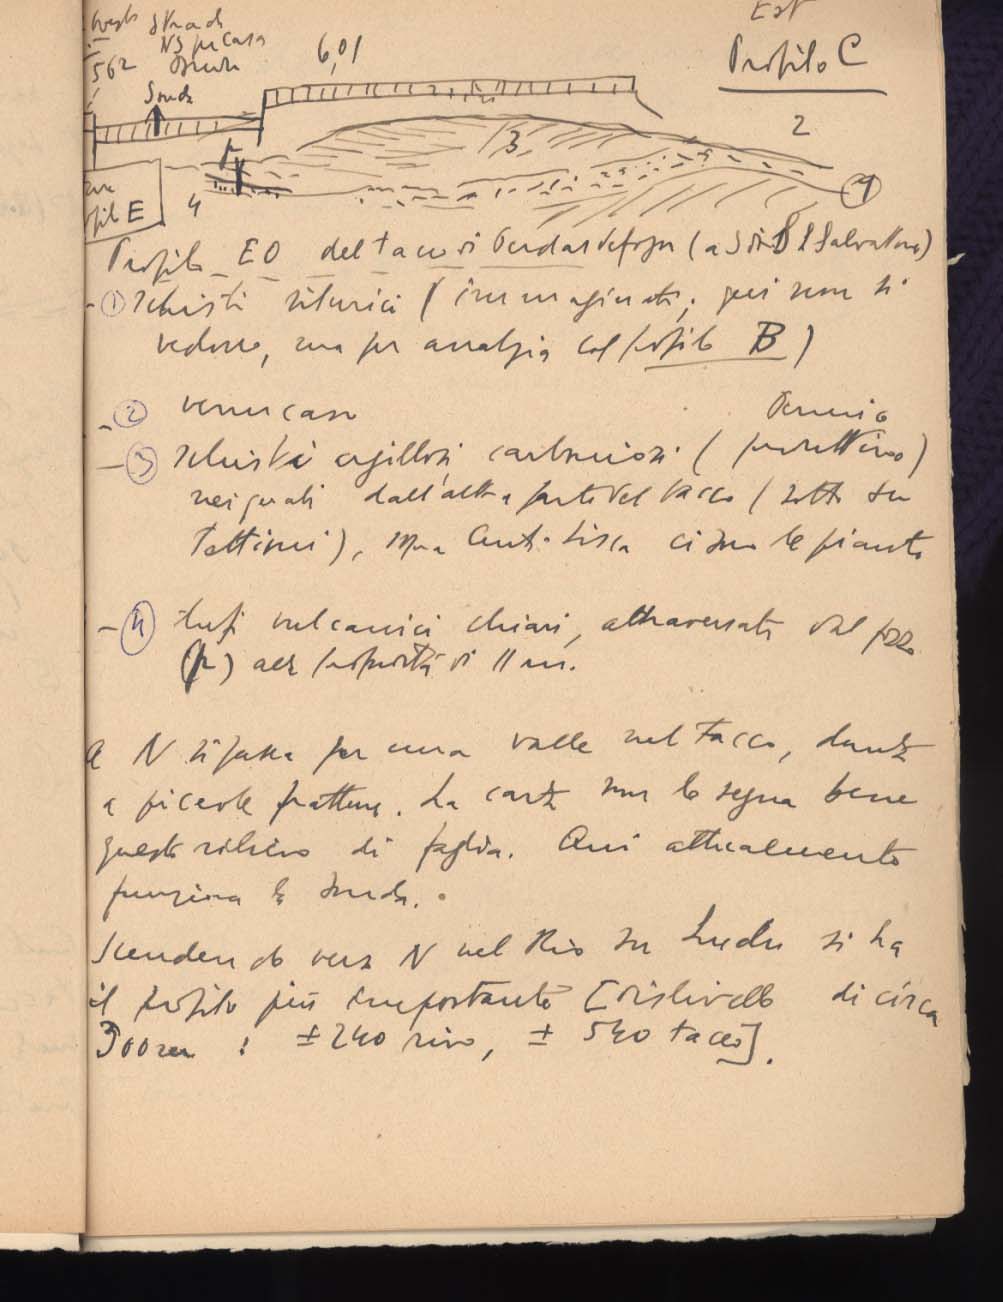 Est
Strada
NS per Casa
562
6,01
Profilo C
Sonda
2
3
p
E
4
1
Profilo EO del tacco di Perdasdefogu (a S di S Salvatore)
- 1 schisti silurici (immaginati; qui non si
vedono, ma per analogia col profilo B)
- 2 verrucano
Permico
- 3 schisti argillosi carboniosi (produttivo)
nei quali dall'altra parte del tacco (sotto su
Tettini), ma Cuili Lisca ci sono le piante
- 4 tufi vulcanici chiari, attraversati dal pozzo
(p) alla profondità di 11 m.
A N si passa per una valle nel Tacco, dovuta
a piccole fratture. La carta non lo segna bene
questo rilievo di faglia. Qui attualmente
funziona la sonda.
Scendendo verso N nel Rio su Luda si ha
il profilo più importante [dislivello di circa
300 m : ± 240 rivo, ± 540 tacco].